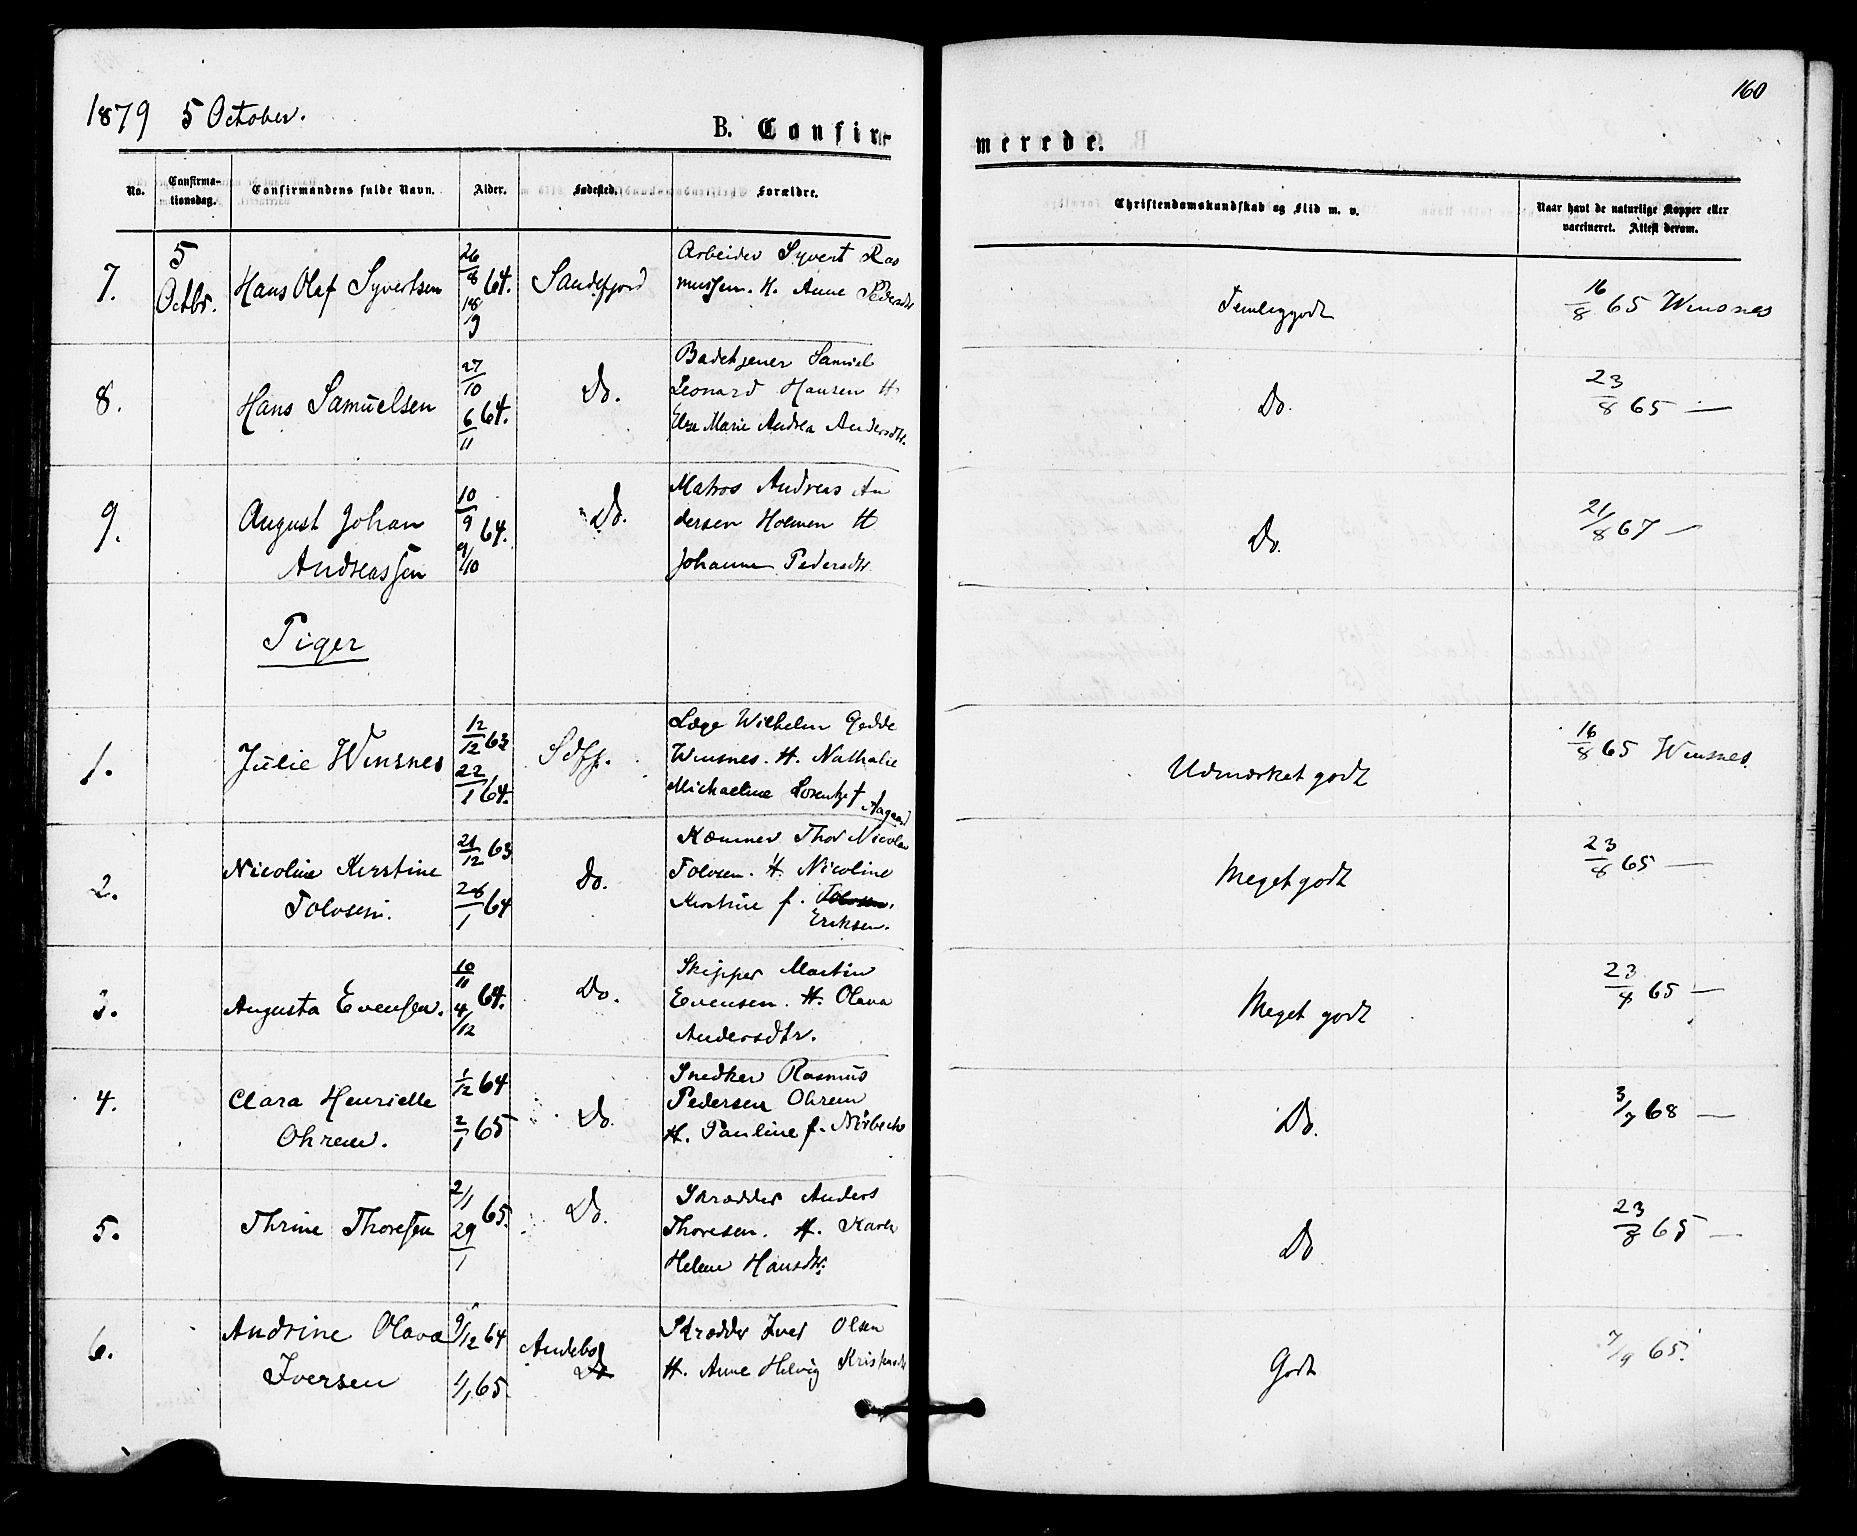 160
1879 5 October.
B. Confir-
merede.
No.
Confirma-
tionsdag.
Confirmandens fulde Navn.
Alder.
Fødested.
Forældre.
Christendomskundskab og Flid m. v.
Naar havt de naturlige Kopper eller
vaccineret. Attest derom.
7.
5
Octbr.
Hans Olaf Syvertsen
26/8 64.
18/9
Sandefjord
Arbeider Syvert Ras
mussen. H. Anne Pedersdtr
Temleg godt
16/8 65 Winsnes
8.
Hans Samuelsen
27/10
6/11 64.
Do.
Badetjener Samuel
Leonard Hansen H
Else Marie Andrea Andersdtr.
Do.
23/8 65 —
9.
August Johan
Andreassen
10/9 64.
9/10
Do.
Matros Andreas An
dersen Holmen H
Johanne Pedersdtr.
Do.
21/8 67 —
Piger
1.
Julie Winsnes
12/12 63
22/1 64.
Sdfj.
Læge Wilhelm Gedde
Winsnes. H. Nathalie
Michaeline Lorentze f
Aagaard
Udmærket godt
16/8 65 Winsnes.
2.
Nicoline Kirstine
Tolvsen.
21/12 63
26/1 64
Do.
Kæmner Thor Nicolai
Tolvsen. H. Nicoline
Kirstine f. Tolvsen.
Eriksen.
Meget godt
23/8 65 —
3.
Augusta Evensen.
10/11 64.
4/12
Do.
Skipper Martin
Evensen. H. Olava
Andersdtr.
Meget godt
23/8 65 —
4.
Clara Henriette
Ohrem.
1/12 64
2/1 65
Do.
Snedker Rasmus
Pedersen Ohrem
H. Pauline f. Nørbech
Do.
3/7 68 —
5.
Thrine Thoresen
2/1 65.
29/1
Do.
Skrædder Anders
Thoresen. H. Karen
Helene Hansdtr.
Do
23/8 65 —
6.
Andrine Olava
Iversen
9/12 64
1/1 65.
Andebo
Do
Skrædder Iver Olsen
H. Anne Helvig
Godt
7/9 65.